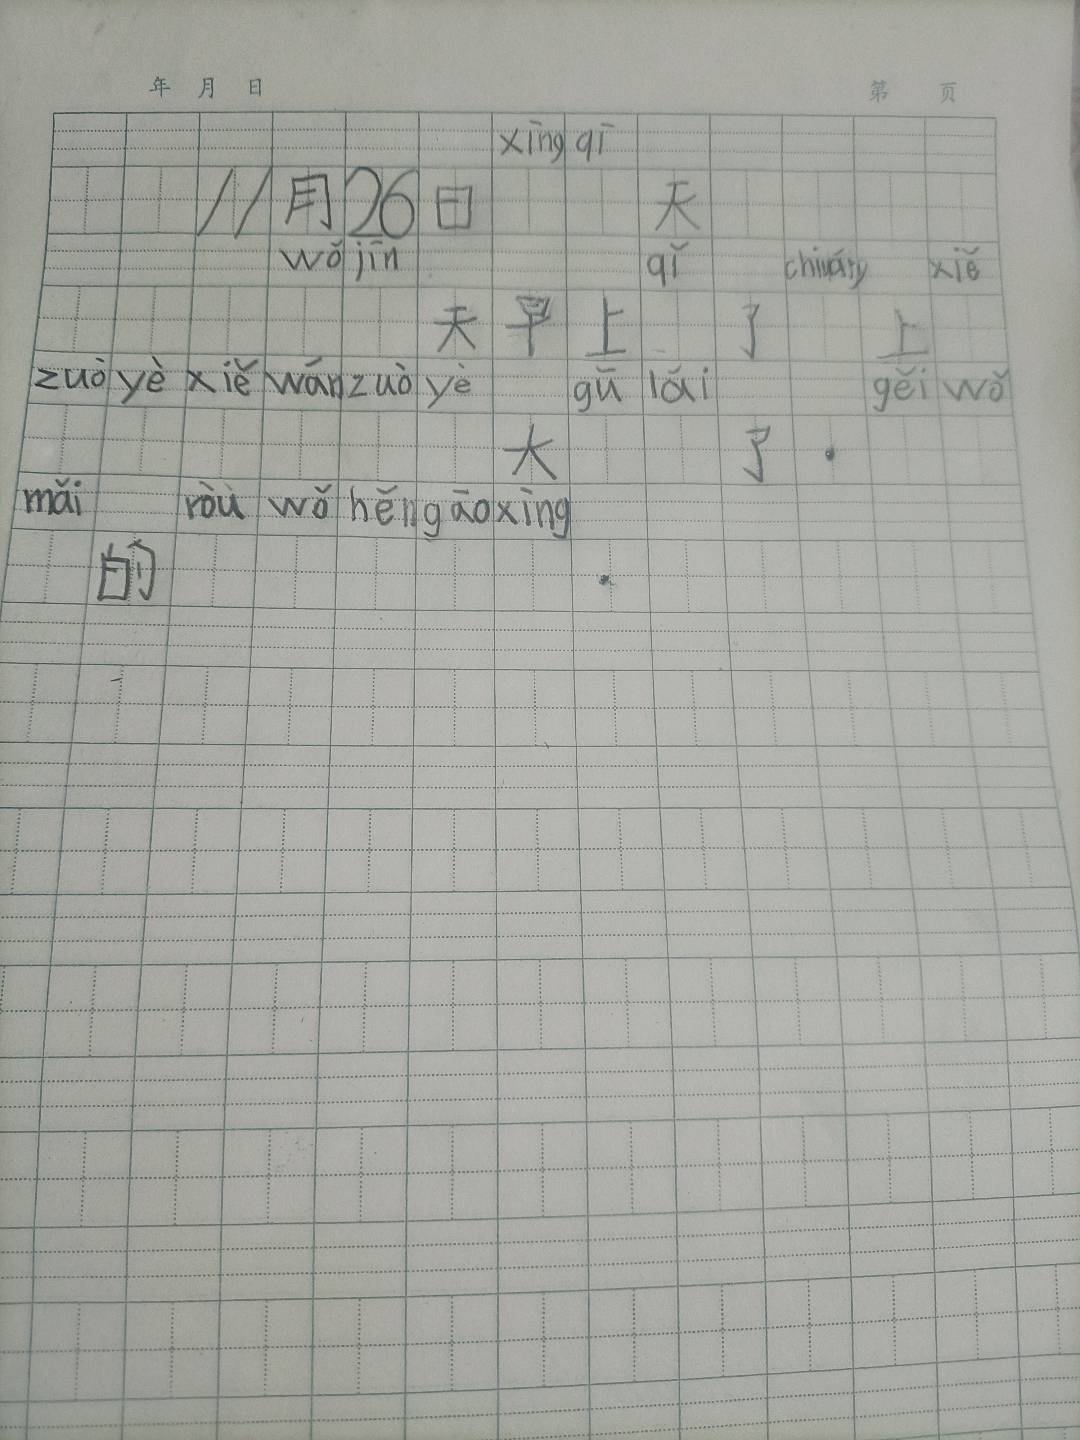 年 月 日 第 页
xīng qī
11月26日 天
wǒ jīn qǐ chuáng xiě
天早上 了 上
zuò yè xiě wán zuò yè gū lǎi gěi wǒ
大 了.
mǎi ròu wǒ hěn gāo xìng
的 .